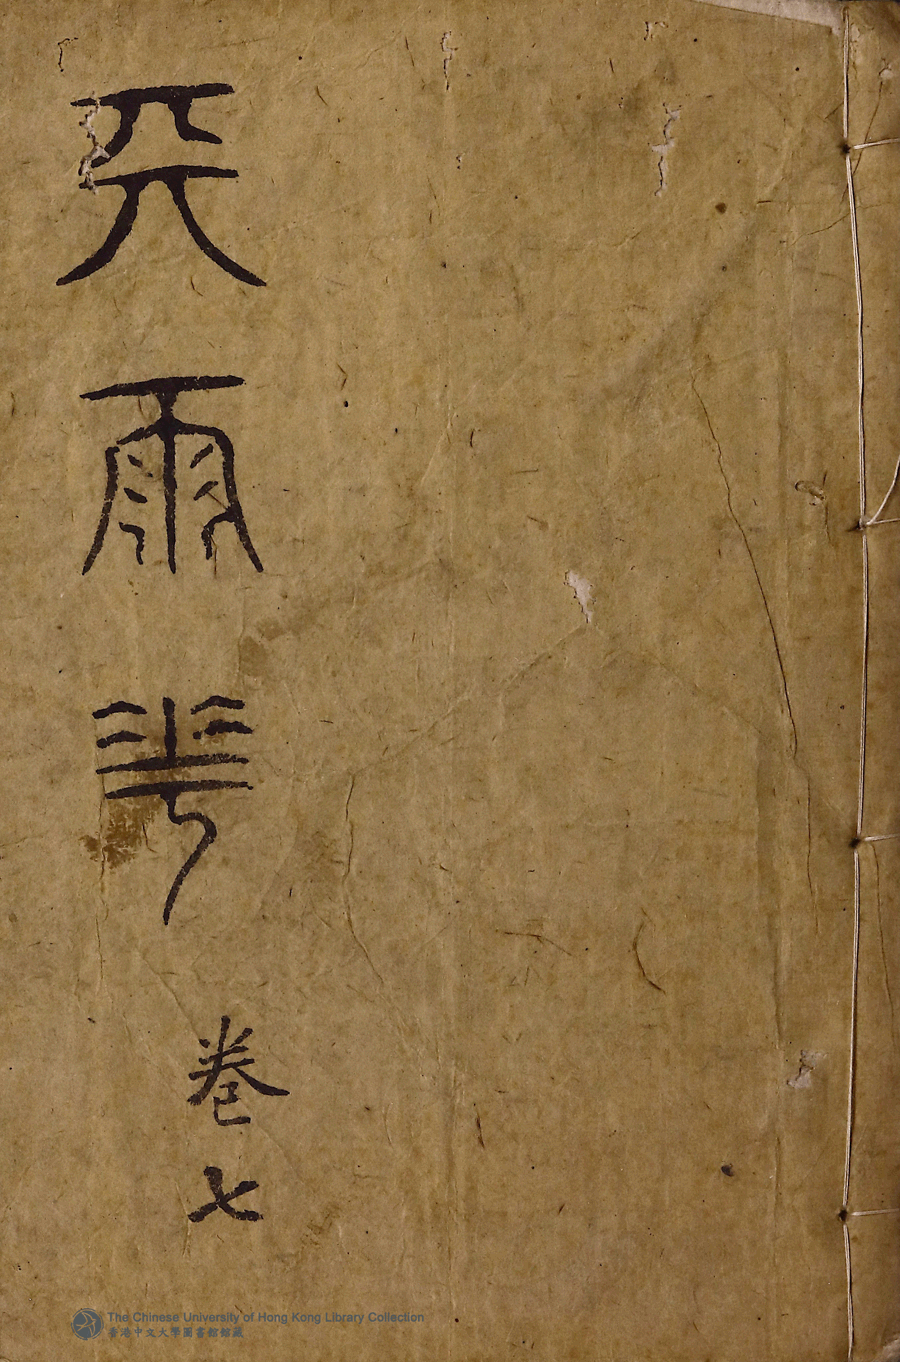 天雨花
卷七
The Chinese University of Hong Kong Library Collection
香港中文大學圖書館館藏